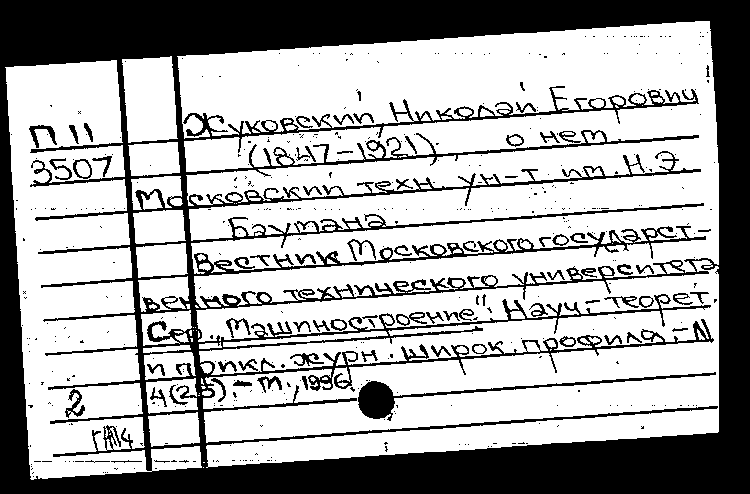 П 11
3507
Жуковский, Николай Егорович
(1847-1921), о нем.
Московский техн. ун-т им. Н.Э.
Баумана.
Вестник Московского государст-
венного технического университета.
Сер. "Машиностроение": Науч.-теорет.
и прикл. журн. широк. профиля.-N
4(25).-М., 1996.
2